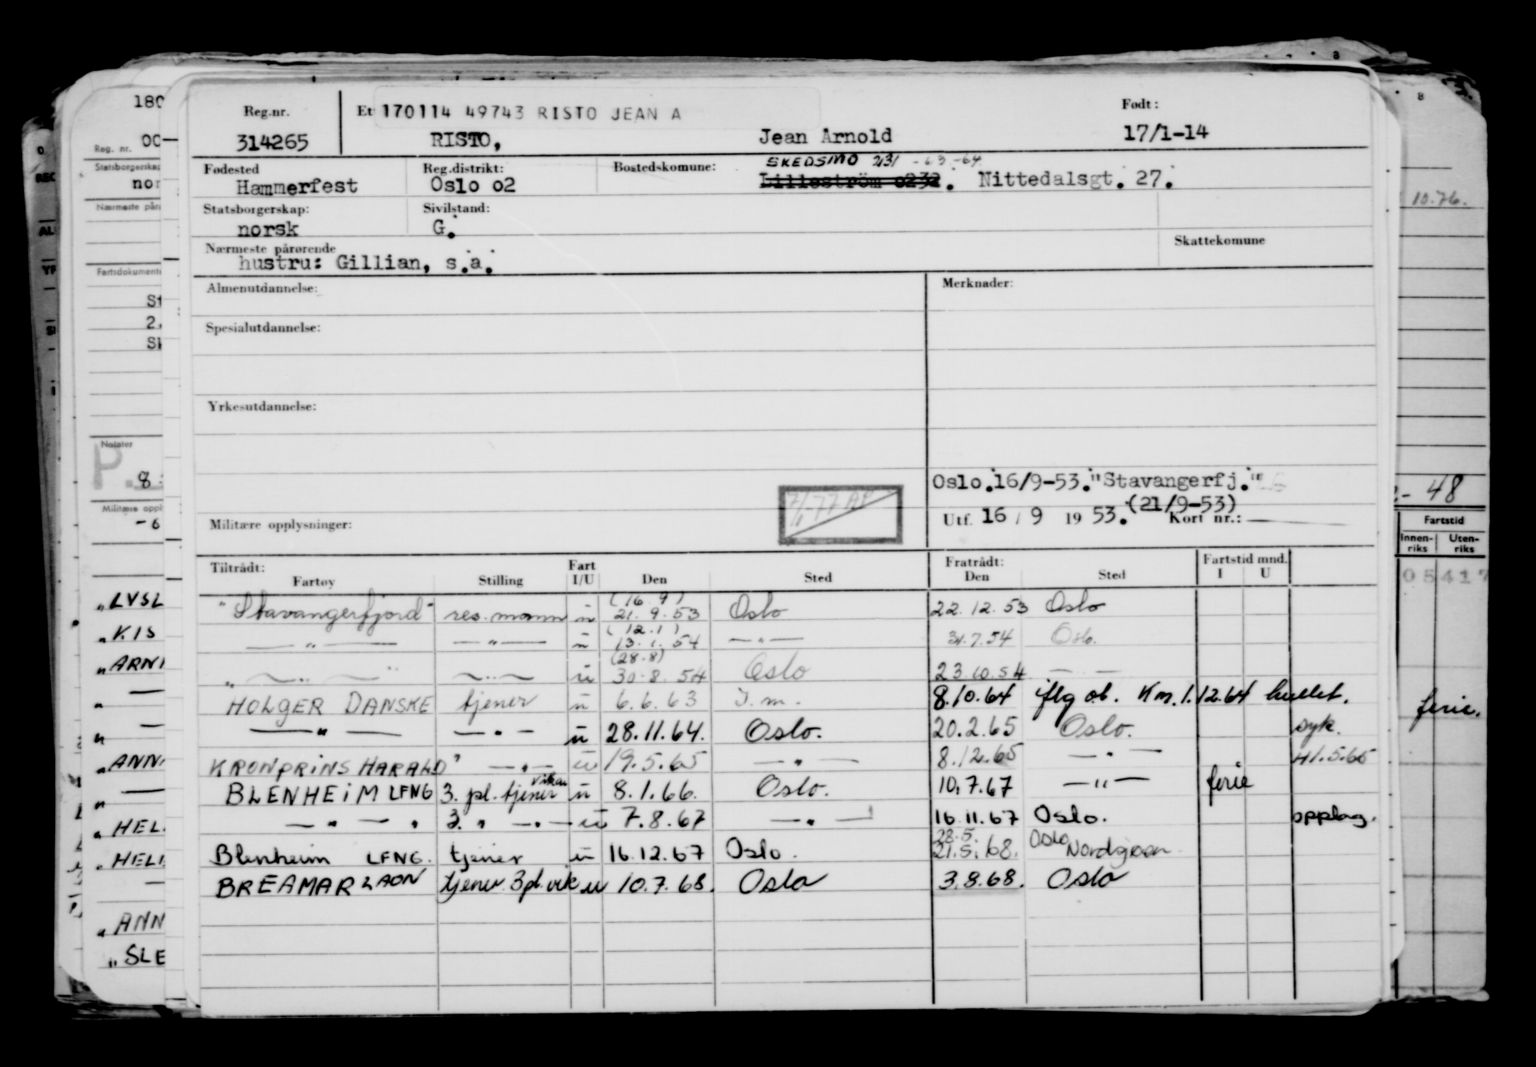 Reg.nr. Et 170114 49743 RISTO JEAN A Født:
314265 RISTO, Jean Arnold 17/1-14
Fødested Reg.distrikt: Bostedskomune: SKEDSMO 231 -63-64
Hammerfest Oslo o2 Lilleström o232. Nittedalsgt. 27.
Statsborgerskap: Sivilstand:
norsk G.
Nærmeste pårørende Skattekomune
hustru: Gillian, s.a.
Almenutdannelse: Merknader:
Spesialutdannelse:
Yrkesutdannelse:
Oslo.16/9-53."Stavangerfj."
7/1-77 AP
(21/9-53)
Militære opplysninger: Utf. 16 / 9 19 53. Kort nr.:
Tiltrådt: Fart Fratrådt: Fartstid mnd.
Fartøy Stilling I/U Den Sted Den Sted I U
(16.9)
"Stavangerfjord" res.mann u 21.9.53 Oslo 22.12.53 Oslo
(12.1)
— " — — " — u 13.1.54 — " — 31.7.54 Oslo.
(28.8)
" — " — " — " — u 30.8.54 Oslo 23.10.54 — —
HOLGER DANSKE tjener u 6.6.63 I.m. 8.10.64 flg ob. Km.1.12.64 hullet.
— " — — " — u 28.11.64. Oslo. 20.2.65 Oslo. syk.
KRONPRINS HARALD" — " — u 19.5.65 — " — 8.12.65 — " — 41.5.65
BLENHEIM LFNG 3. pl. tjener vikar u 8.1.66. Oslo. 10.7.67 — " — ferie
— " — " 3. " — " — u 7.8.67 — " — 16.11.67 Oslo. opplag.
28.5.
Blenheim LFNG. tjener u 16.12.67 Oslo. 21.5.68. Oslo
BREAMAR LAON tjener 3pl. vik u 10.7.68. Oslo 3.8.68. Oslo
180
Reg. nr. 00
Statsborgerskap
nor
Nærmeste pår
Fartsdokument
St
2.
Sk
Notater
P.
8
Militære oppl
-6
"LYSL
"KIS
"ARNI
"ANN
"HEL
"HELI
"ANN
"SLE
8
10.76.
- 48
Fartstid
Innen-riks Uten-riks
05417
ferie.